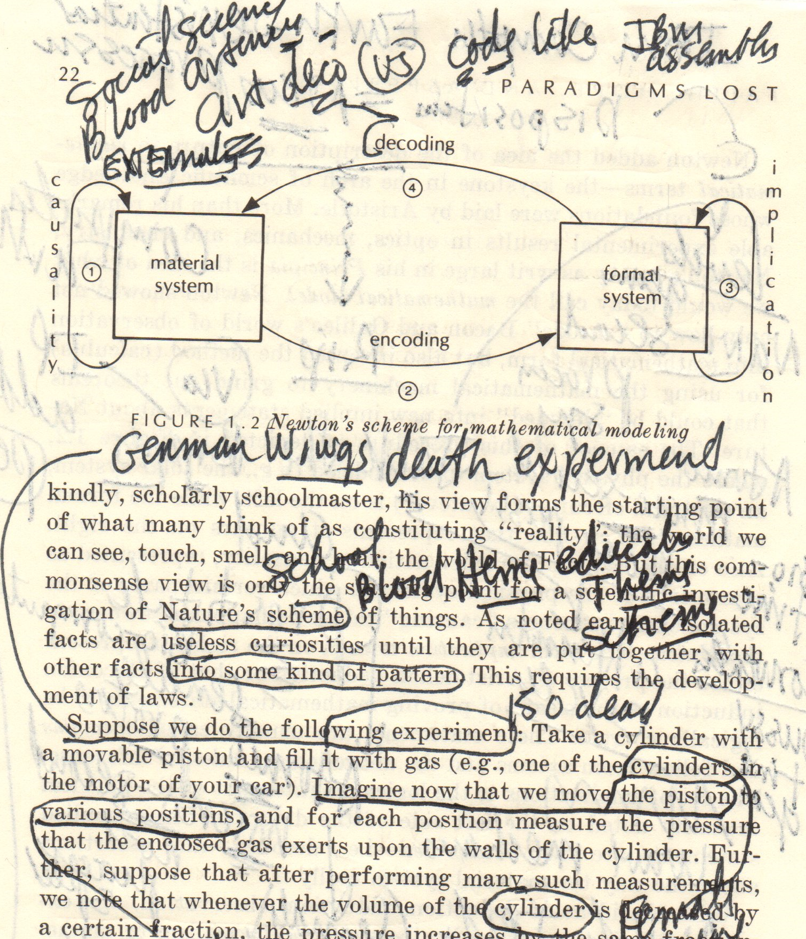 Social science
Blood artery
art deco VS code like IBM
assembly
22
PARADIGMS LOST
EXTERNAL
decoding
④
causality
implication
①
material
system
formal
system
③
encoding
②
FIGURE 1.2 Newton's scheme for mathematical modeling
German Wings death experment
kindly, scholarly schoolmaster, his view forms the starting point
of what many think of as constituting “reality”: the world we
can see, touch, smell, and hear: the world of Fact. But this com-
School
educate
Blood Hems Thems
scheme
monsense view is only the starting point for a scientific investi-
gation of Nature's scheme of things. As noted earlier, isolated
facts are useless curiosities until they are put together with
other facts into some kind of pattern. This requires the develop-
ment of laws.
150 dead
Suppose we do the following experiment: Take a cylinder with
a movable piston and fill it with gas (e.g., one of the cylinders in
the motor of your car). Imagine now that we move the piston to
various positions, and for each position measure the pressure
that the enclosed gas exerts upon the walls of the cylinder. Fur-
ther, suppose that after performing many such measurements,
we note that whenever the volume of the cylinder is decreased by
a certain fraction, the pressure increases by the same